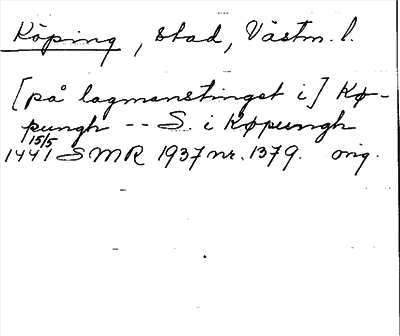 Köping, stad, Västm. l.
[på lagmanstinget i] Kø-
pungh -- S. i Køpungh
15/5
1441 SMR 1937 nr. 1379. orig.